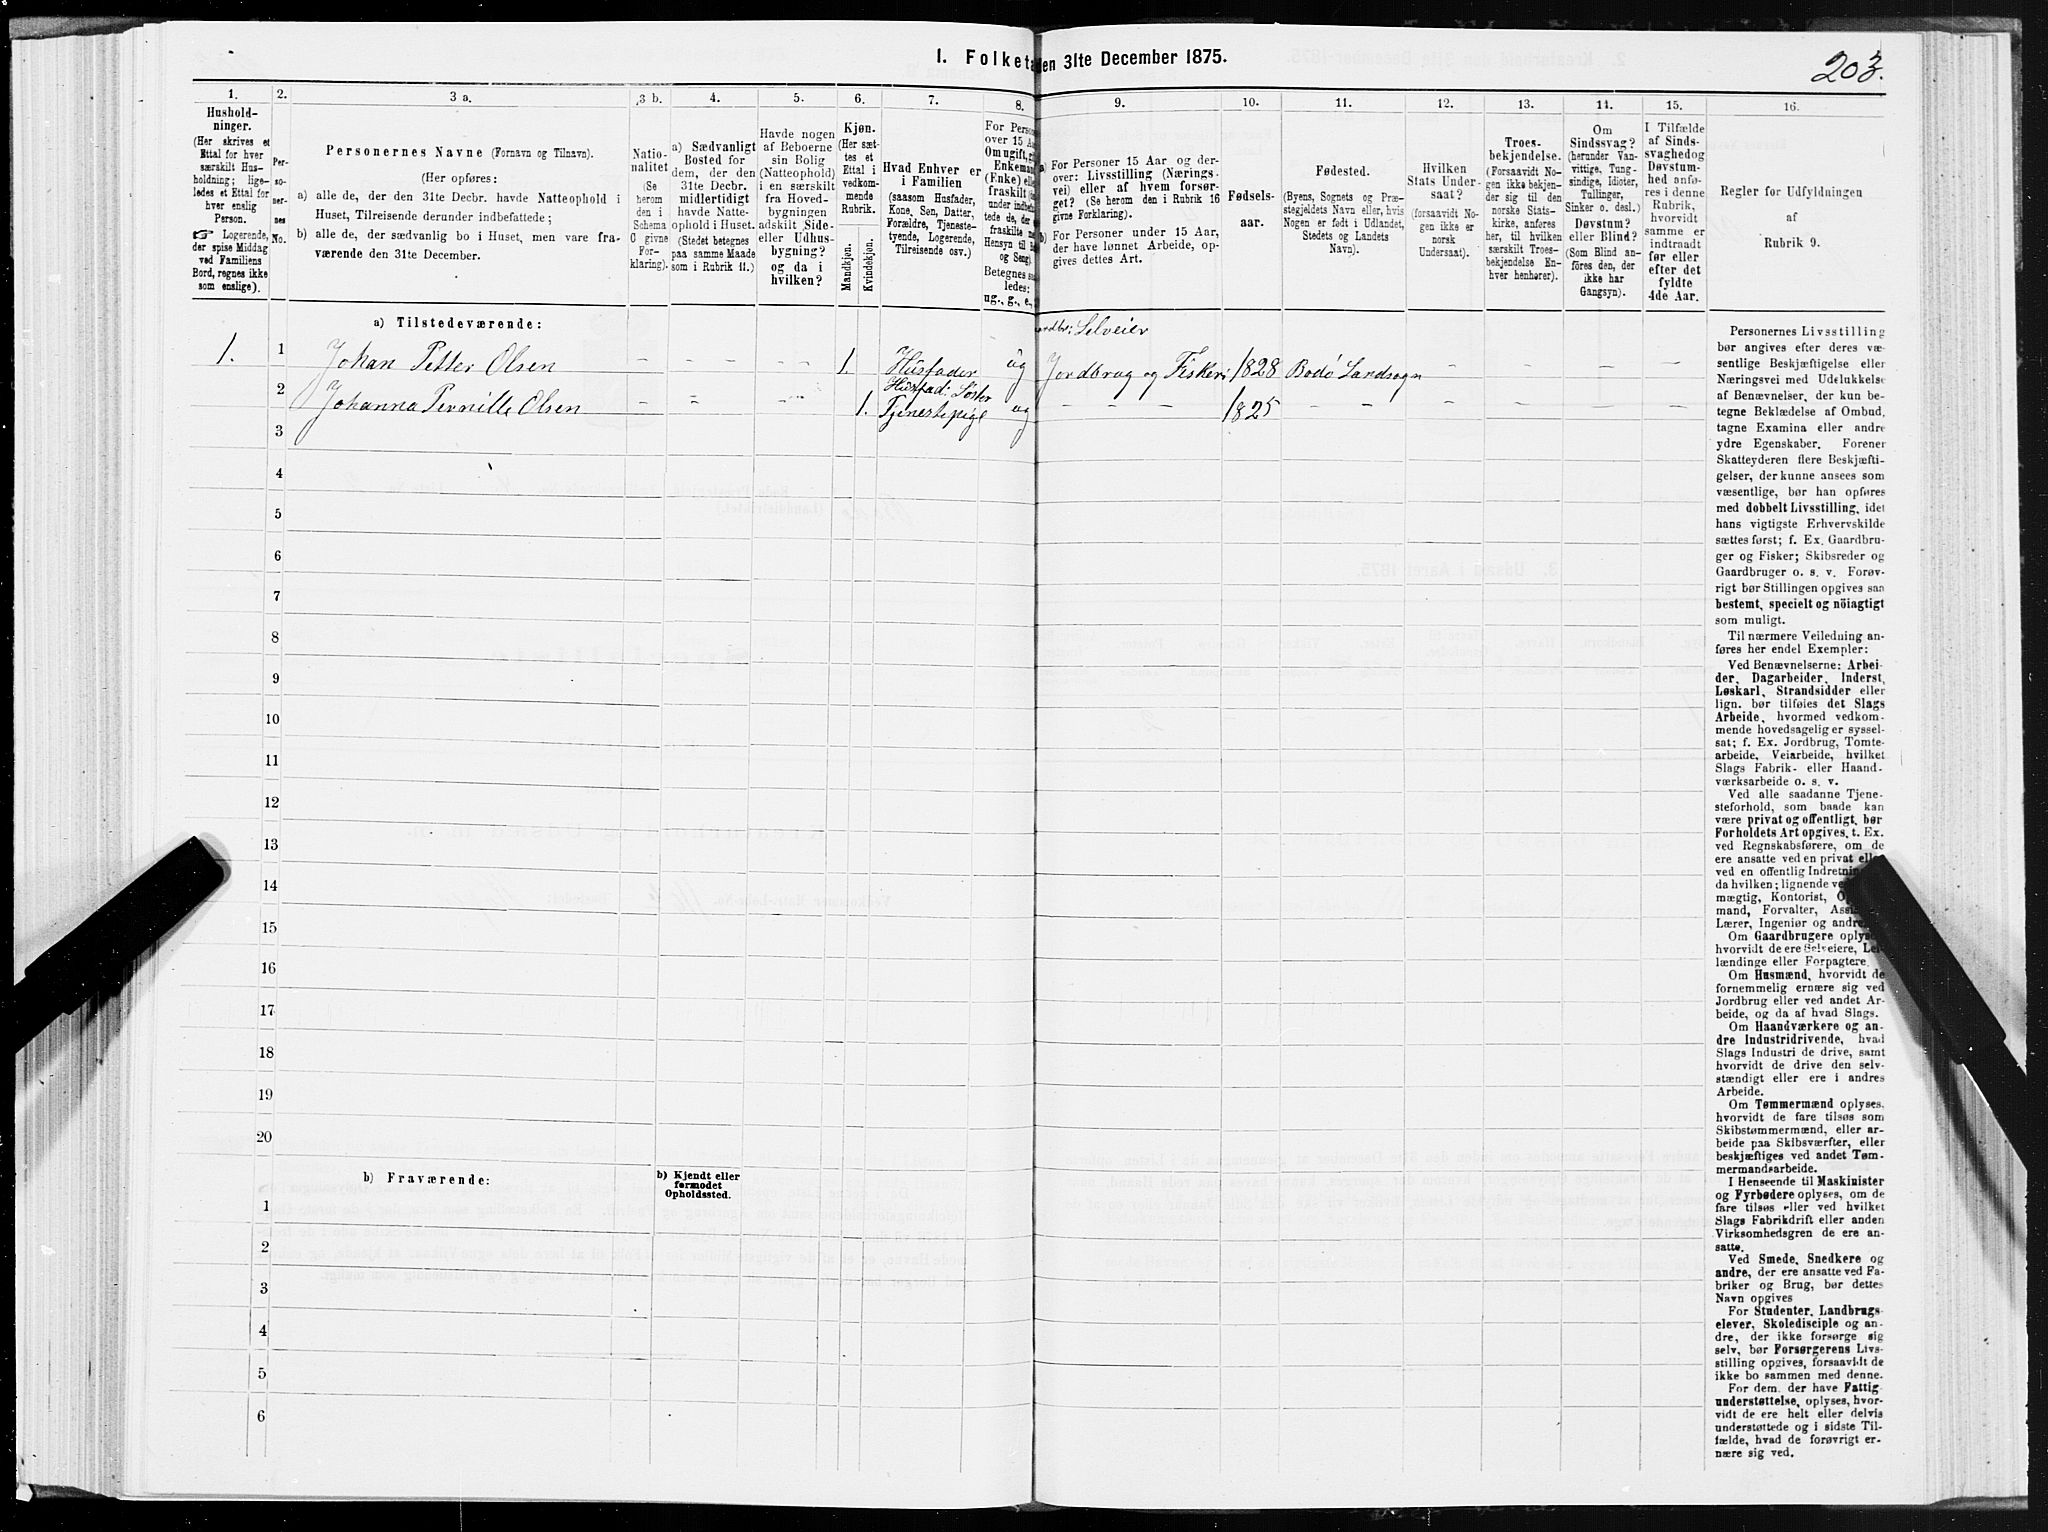 I. Folketa
en 31te December 1875.
203.
1.
2.
3 a.
3 b.
4.
5.
6.
7.
8.
9.
10.
11.
12.
13.
14.
15.
16.
Hushold-
ninger.
(Her skrives et
Ettal for hver
særskilt Hus-
holdning; lige-
ledes et Ettal for
hver enslig
Person.
☞ Logerende,
der spise Middag
ved Familiens
Bord, regnes ikke
som enslige).
Per-
so-
ner-
nes
No.
Personernes Navne (Fornavn og Tilnavn).
(Her opføres:
a) alle de, der den 31te Decbr. havde Natteophold i
Huset, Tilreisende derunder indbefattede;
b) alle de, der sædvanlig bo i Huset, men vare fra-
værende den 31te December.
Natio-
nalitet
(Se
herom
den i
Schema
O givne
For-
klaring).
a) Sædvanligt
Bosted for
dem, der den
31te Decbr.
midlertidigt
havde Natte-
ophold i Huset.
(Stedet betegnes
paa samme Maade
som i Rubrik 11.)
Havde nogen
af Beboerne
sin Bolig
(Natteophold)
i en særskilt
fra Hoved-
bygningen
adskilt Side-
eller Udhus-
bygning?
og da i
hvilken?
Kjøn.
(Her sæt-
tes et
Ettal i
vedkom-
mende
Rubrik.
Mandkjøn.
Kvindekjøn.
Hvad Enhver er
i Familien
(saasom Husfader,
Kone, Søn, Datter,
Forældre, Tjeneste-
tyende, Logerende,
Tilreisende osv.)
For Perso
over 15 Aa
Om ugift, g
Enkeman
(Enke) elle
fraskilt
under indbe
tede de, der
fraskilte m
Hensyn til B
og Seng).
Betegnes saa
ledes:
ug., g., e.,
a) For Personer 15 Aar og der-
over: Livsstilling (Nærings-
vei) eller af hvem forsør-
get? (Se herom den i Rubrik 16
givne Forklaring).
b) For Personer under 15 Aar,
der have lønnet Arbeide, op-
gives dettes Art.
Fødsels-
aar.
Fødested.
(Byens, Sognets og Præ-
stegjeldets Navn eller, hvis
Nogen er født i Udlandet,
Stedets og Landets
Navn).
Hvilken
Stats Under-
saat?
(forsaavidt No-
gen ikke er
norsk
Undersaat).
Troes-
bekjendelse.
(Forsaavidt No-
gen ikke bekjen-
der sig til den
norske Stats-
kirke, anføres
her, til hvilken
særskilt Troes-
bekjendelse En-
hver henhører).
Om
Sindssvag?
(herunder Van-
vittige, Tung-
sindige, Idioter,
Tullinger,
Sinker o. desl.)
Døvstum?
eller Blind?
(Som Blind an-
føres den, der
ikke har
Gangsyn).
I Tilfælde
af Sinds-
svaghedog
Døvstum-
hed anfø-
res i denne
Rubrik,
hvorvidt
samme er
indtraadt
før eller
efter det
fyldte
4de Aar.
Regler for Udfyldningen
af
Rubrik 9.
a) Tilstedeværende:
ordbr: Selveier
1. 1 Johan Petter Olsen – – – – – – 1. Husfader ug Jordbrug og Fiskeri 1828 Bodö Landsogn – – – –
Husfad: Söster
2 Johanna Pernille Olsen – – – 1. Tjenestepige ug – – – – 1825 – – – – – – –
3
4
5
6
7
8
9
10
11
12
13
14
15
16
17
18
19
20
b) Fraværende:
b) Kjendt eller
formodet
Opholdssted.
1
2
3
4
5
6
Personernes Livsstilling
bør angives efter deres væ-
sentlige Beskjæftigelse eller
Næringsvei med Udelukkelse
af Benævnelser, der kun be-
tegne Beklædelse af Ombud,
tagne Examina eller andre
ydre Egenskaber. Forener
Skatteyderen flere Beskjæfti-
gelser, der kunne ansees som
væsentlige, bør han opføres
med dobbelt Livsstilling, idet
hans vigtigste Erhvervskilde
sættes først; f. Ex. Gaardbru-
ger og Fisker; Skibsreder og
Gaardbruger o. s. v. Forøv-
rigt bør Stillingen opgives saa
bestemt, specielt og nöiagtigt
som muligt.
Til nærmere Veiledning an-
føres her endel Exempler:
Ved Benævnelserne: Arbei-
der, Dagarbeider, Inderst,
Løskarl, Strandsidder eller
lign. bør tilføies det Slags
Arbeide, hvormed vedkom-
mende hovedsagelig er syssel-
sat; f. Ex. Jordbrug, Tomte-
arbeide, Veiarbeide, hvilket
Slags Fabrik- eller Haand-
værksarbeide o. s. v.
Ved alle saadanne Tjene-
steforhold, som baade kan
være privat og offentligt, bør
Forholdets Art opgives, t. Ex.
ved Regnskabsførere, om de
ere ansatte ved en privat elle
ved en offentlig Indretnin
da hvilken; lignende ve
mægtig, Kontorist, O
mand, Forvalter, Assi
Lærer, Ingeniør og andre
Om Gaardbrugere oplys
hvorvidt de ere Selveiere, Lei-
lændinge eller Forpagtere.
Om Husmænd, hvorvidt de
fornemmelig ernære sig ved
Jordbrug eller ved andet Ar-
beide, og da af hvad Slags.
Om Haandværkere og an-
dre Industridrivende, hvad
Slags Industri de drive, samt
hvorvidt de drive den selv-
stændigt eller ere i andres
Arbeide.
Om Tømmermænd oplyses,
hvorvidt de fare tilsøs som
Skibstømmermænd, eller ar-
beide paa Skibsværfter, eller
beskjæftiges ved andet Tøm-
mermandsarbeide.
I Henseende til Maskinister
og Fyrbødere oplyses, om de
fare tilsøs eller ved hvilket
Slags Fabrikdrift eller anden
Virksomhedsgren de ere an-
satte.
Ved Smede, Snedkere og
andre, der ere ansatte ved Fa-
briker og Brug, bør dettes
Navn opgives
For Studenter, Landbrugs-
elever, Skoledisciple og an-
dre, der ikke forsørge sig
selv, bør Forsørgerens Livs-
stilling opgives, forsaavidt de
ikke bo sammen med denne.
For dem, der have Fattig-
understøttelse, oplyses, hvor-
vidt de ere helt eller delvis
understøttede og i sidste Til-
fælde, hvad de forøvrigt er-
nære sig ved.